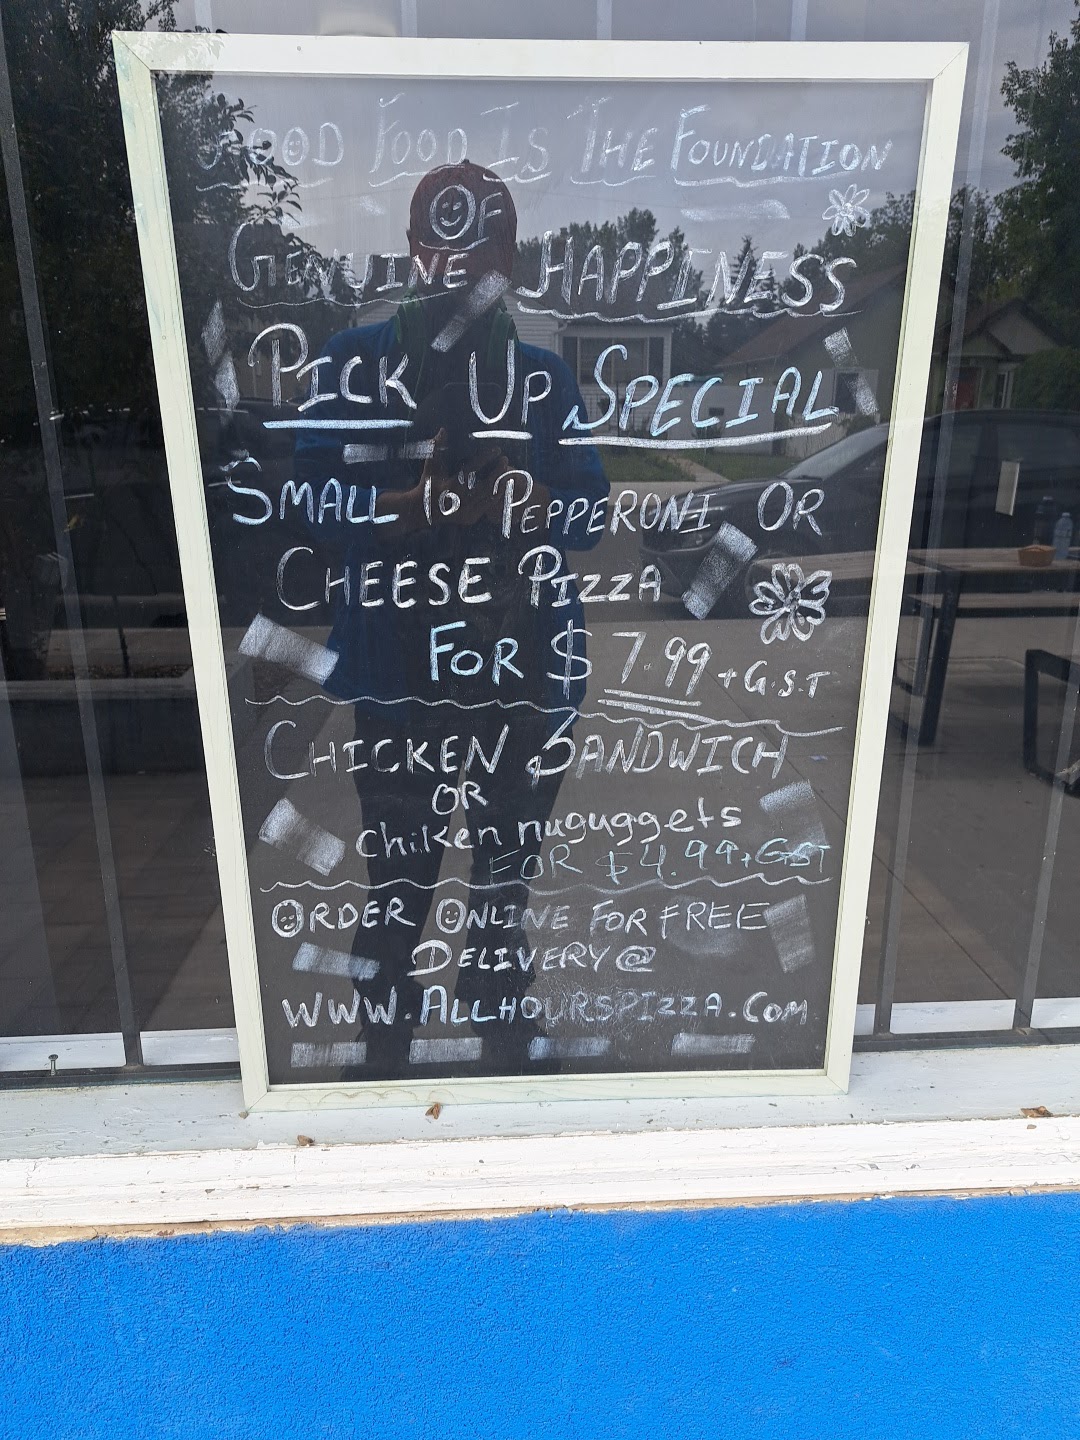 GOOD FOOD IS THE FOUNDATION
OF
GENUINE HAPPINESS
PICK UP SPECIAL
SMALL 10" PEPPERONI OR
CHEESE PIZZA
FOR $7.99 + G.S.T
CHICKEN SANDWICH
OR
Chiken nuguggets
FOR $4.99+GST
ORDER ONLINE FOR FREE
DELIVERY @
WWW.ALLHOURSPIZZA.COM